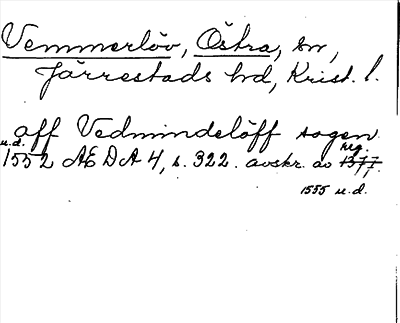 Vemmerlöv, Östra, sn,
Järrestads hd, Krist. l.
aff Vedmindelöff sogen
u.d.
1552 ÆDA 4, s. 322. avskr. av reg. 1577.
1555 u.d.